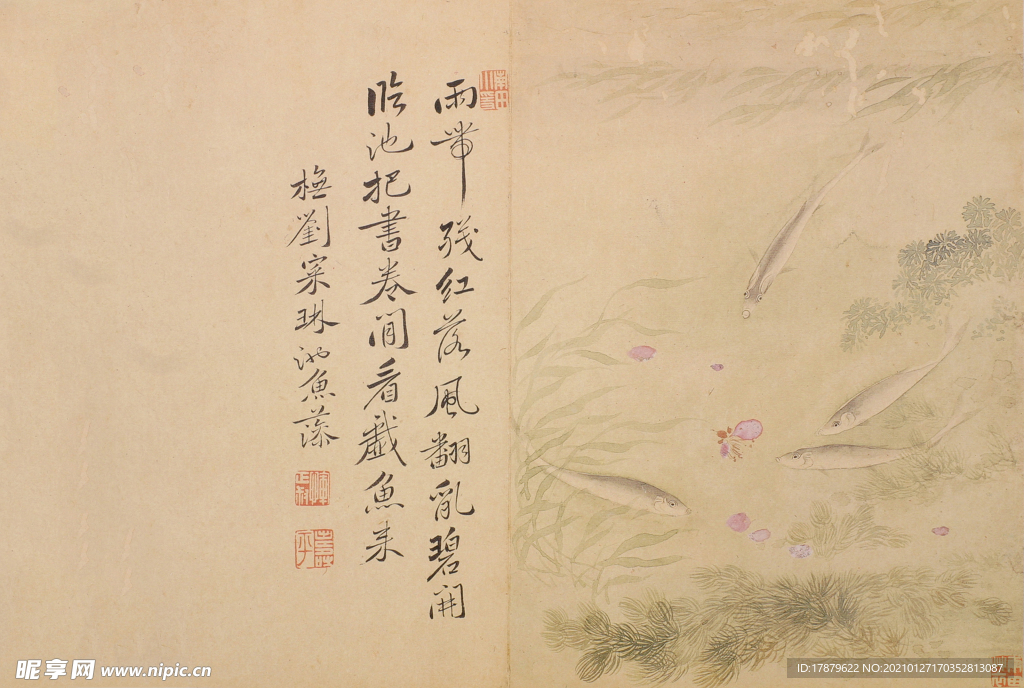 雨帶殘紅落風翻亂碧開
臨池把書卷閒看戲魚来
橅劉寀琳池魚藻
昵享网 www.nipic.cn
ID:17879622 NO:20210127170352813087